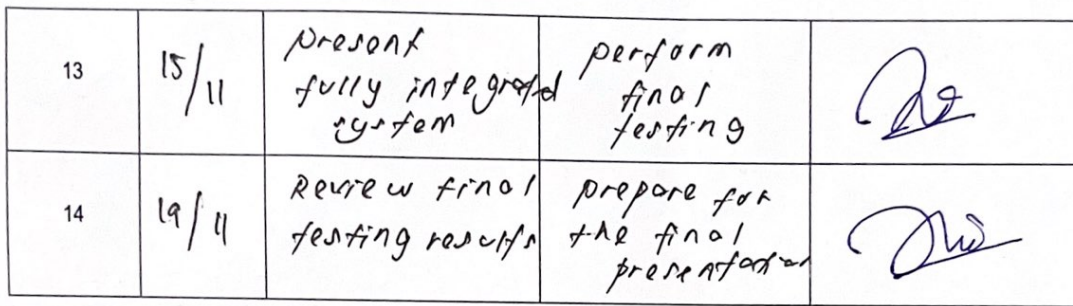 13
15/11
present
fully integrated
system
perform
final
testing
14
19/11
Review final
testing results
prepare for
the final
presentation